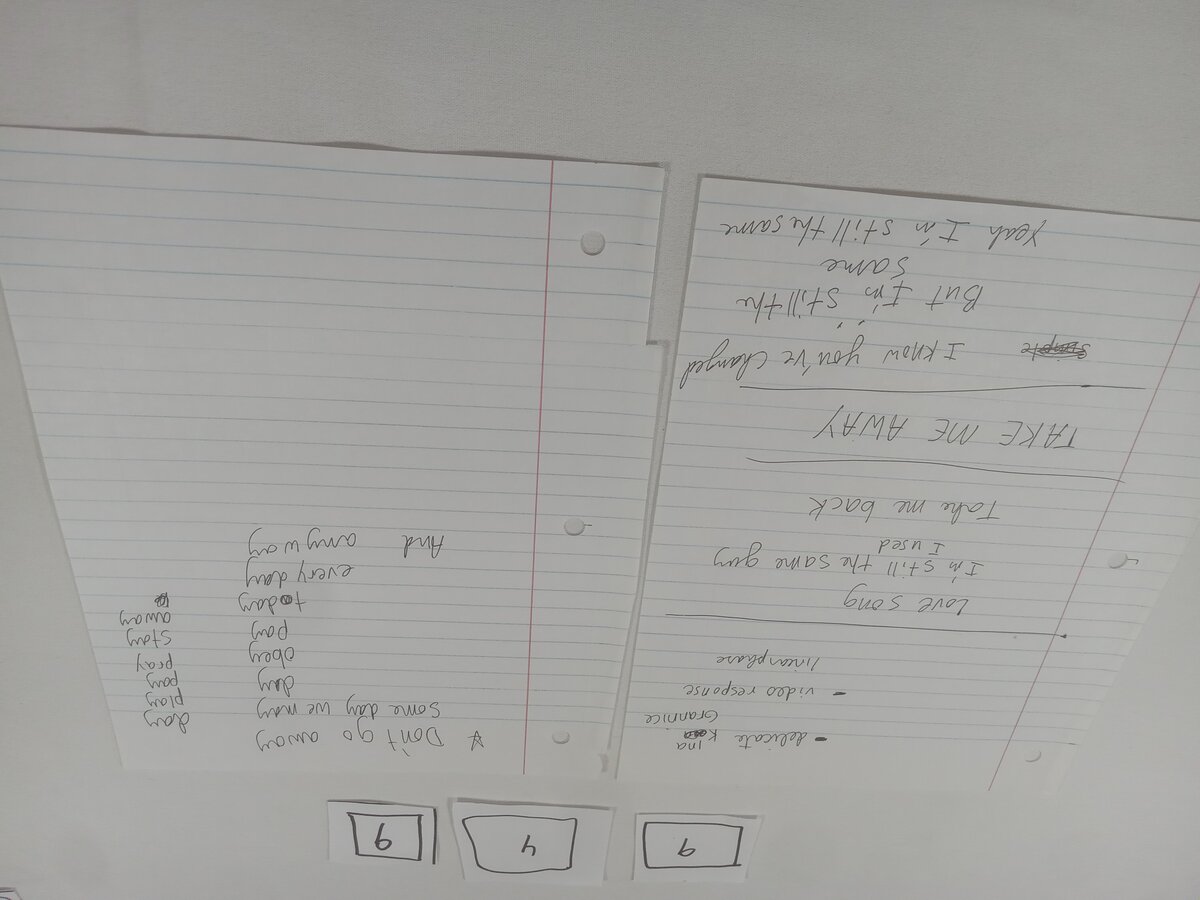 6 4 6
- delicate ina
Grannice
- video response
linearphase
Love song
I'm still the same guy
I used
Take me back
TAKE ME AWAY
I know you've changed
But I'm still the
same
Yeah I'm still the same
Don't go away
Some day we may
day
obey
pay
today
every day
And anyway
day
play
pay
pray
stay
away